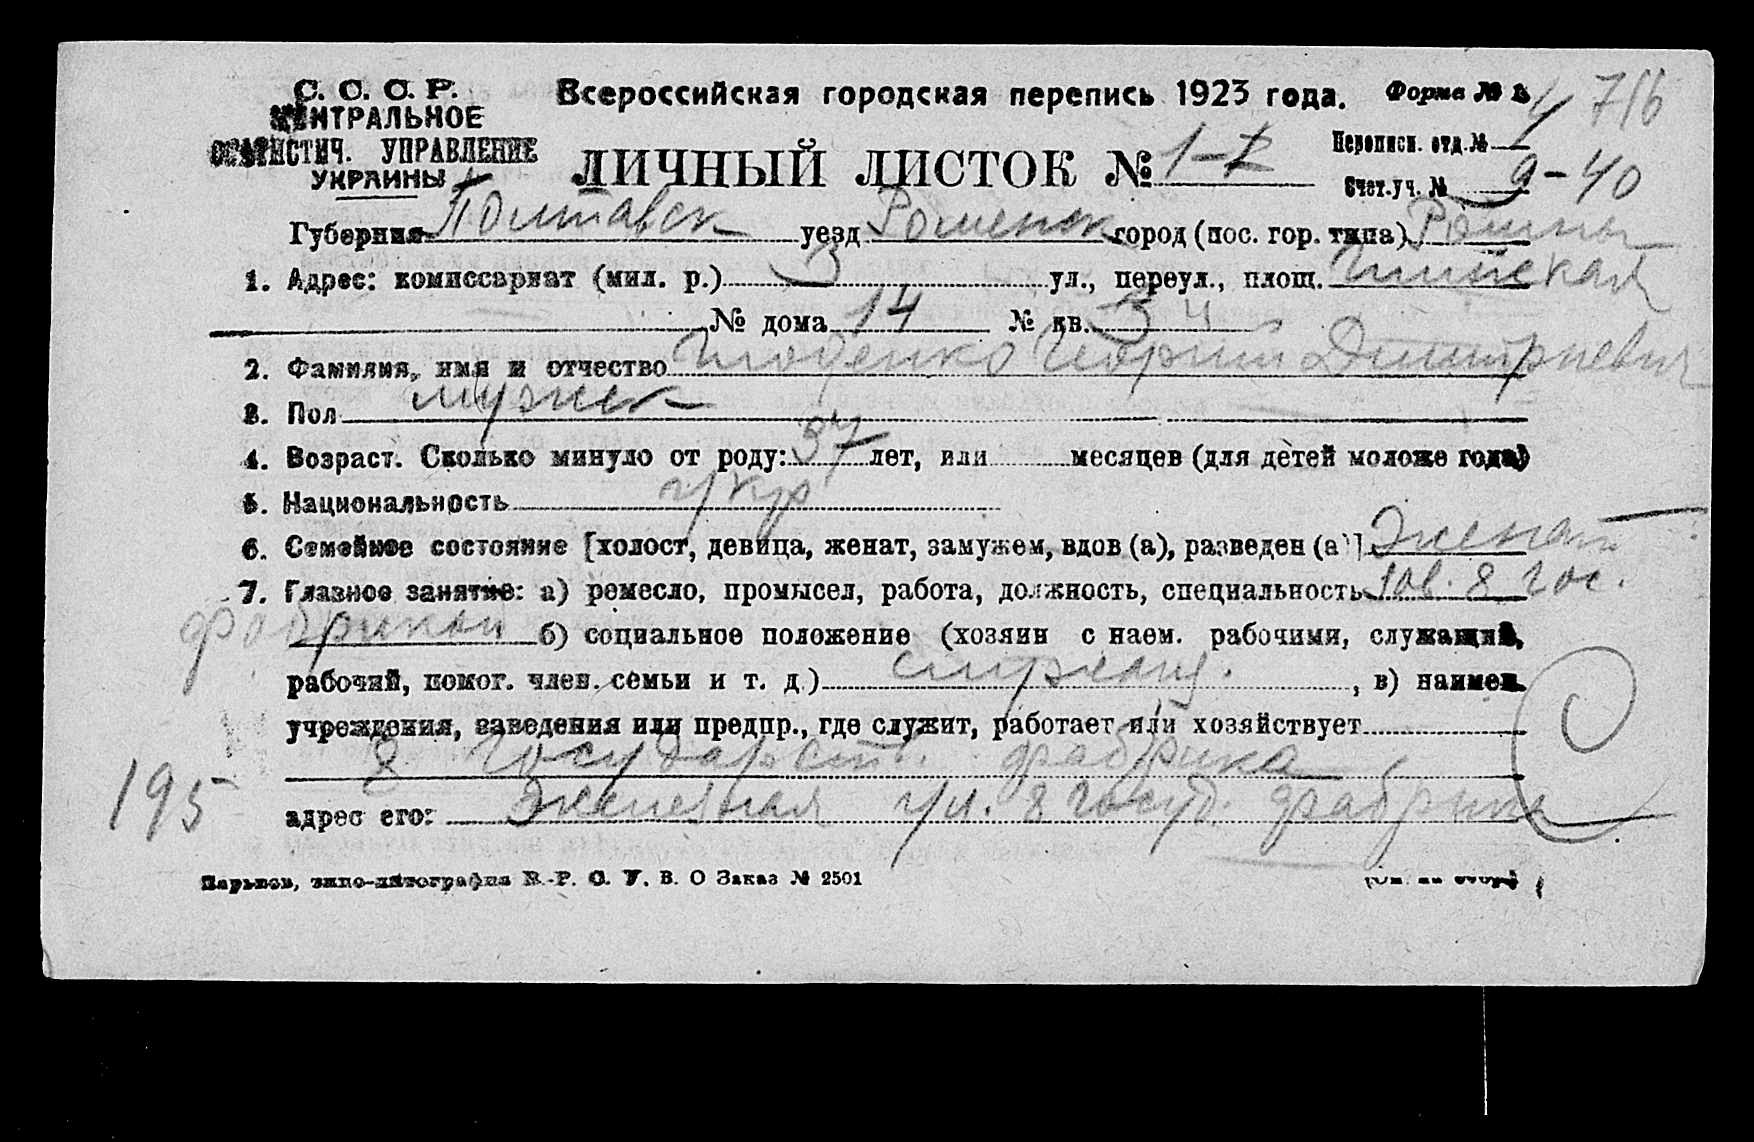 С. С. С. Р.
ЦЕНТРАЛЬНОЕ
СТАТИСТИЧ. УПРАВЛЕНИЕ
УКРАИНЫ
Всероссийская городская перепись 1923 года.
Форма №
4 716
ЛИЧНЫЙ ЛИСТОК №
Переписн. отд. №
Счет. уч. № 9-40
Губерния Полтавск уезд Роменск город (пос. гор. типа) Ромны
1. Адрес: комиссариат (мил. р.) 3 ул., переул., площ.
№ дома 14 № кв. 3
2. Фамилия, имя и отчество Георгий Дмитриевич
3. Пол мужск
4. Возраст. Сколько минуло от роду: 37 лет, или месяцев (для детей моложе года)
5. Национальность укр
6. Семейное состояние [холост, девица, женат, замужем, вдов (а), разведен (а)] Женат
7. Главное занятие: а) ремесло, промысел, работа, должность, специальность зав. 8 гос.
фабрикой б) социальное положение (хозяин с наем. рабочими, служащий,
рабочий, помог. член. семьи и т. д.) служащ. , в) наимен.
учреждения, заведения или предпр., где служит, работает или хозяйствует
8 Государст. фабрика
195
адрес его: ул. 8 Госуд. фабрика
Харьков, типо-литография В. О Заказ № 2501